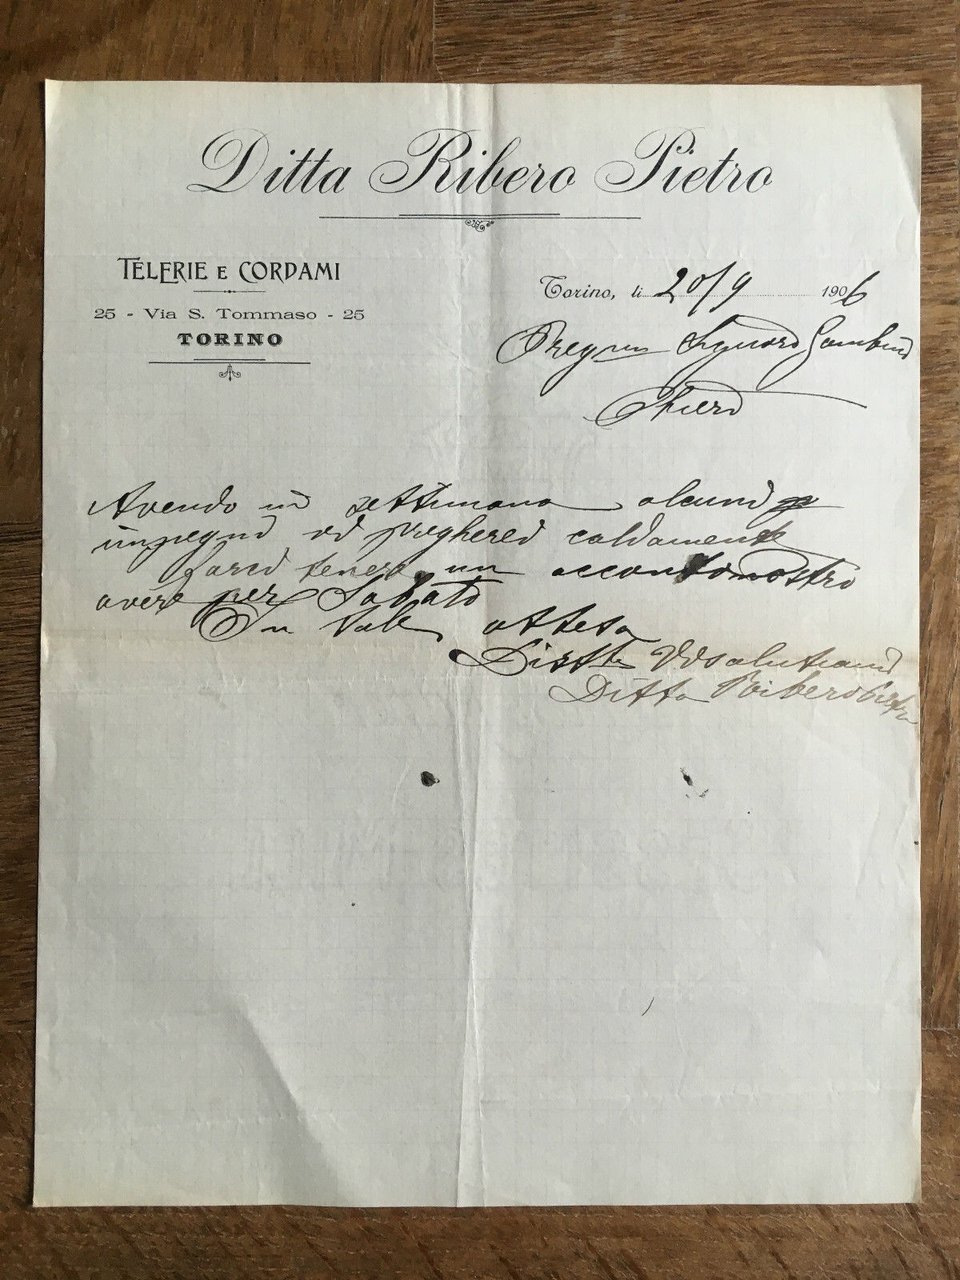 Ditta Ribero Pietro
TELERIE E CORDAMI
25 - Via S. Tommaso - 25
TORINO
Torino, li 20/9 1906
Signore Gambino
Chieri
Avendo in settimana alcuni
impegni pregherei caldamente
farci tenere un acconto nostro
avere per Sabato
In tale attesa
Ditta Ribero Pietro